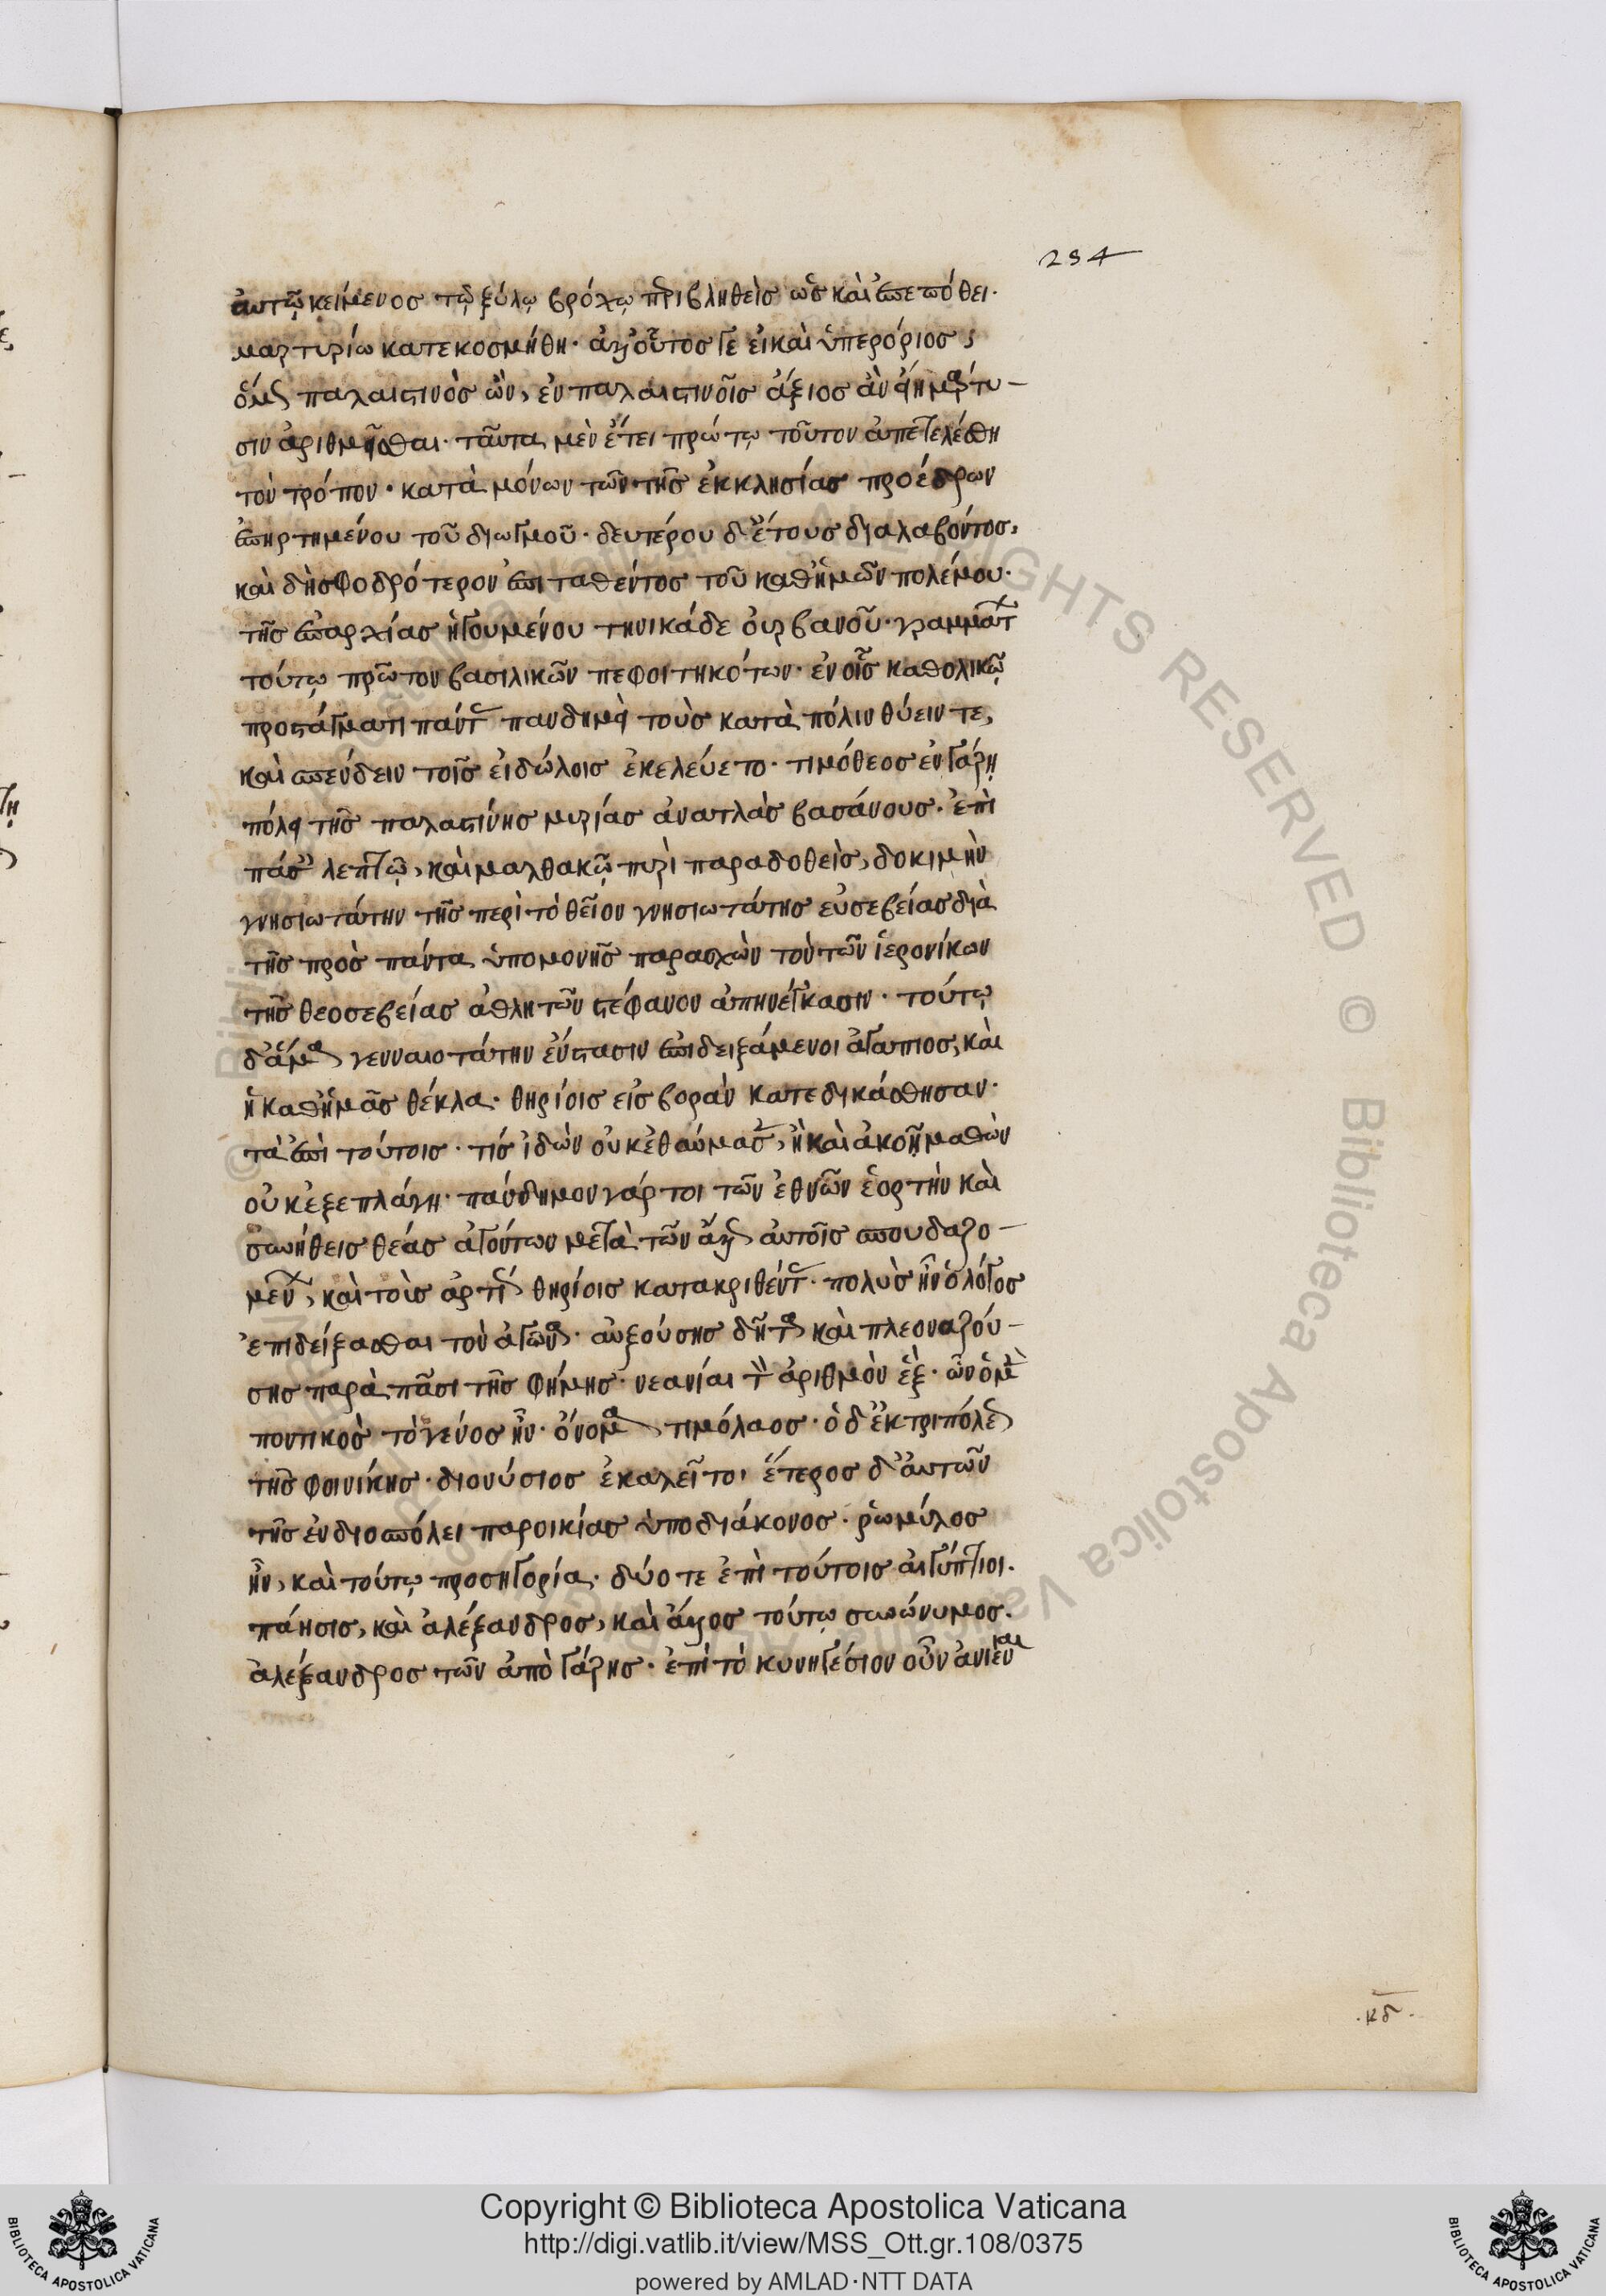 234
αὐτῶ κείμενος τῷ ξύλῳ βρόχῳ περιβληθεὶς ὡς καὶ ἐπεπόθει·
μαρτυρίω κατεκοσμήθη· ἀλλ' οὗτος γε εἰ καὶ ὑπερόριος,
ὅμως παλαιστινὸς ὢν, ἐν παλαιστινοῖς ἄξιος ἂν εἴη μάρτυ–
σιν ἀριθμῆσθαι· ταῦτα μὲν ἔτει πρώτῳ τοῦτον ἀπετελέσθη
τὸν τρόπον· κατὰ μόνων τῶν τῆς ἐκκλησίας προέδρων
ἐπηρτημένου τοῦ διωγμοῦ· δευτέρου δ' ἔτους διαλαβόντος,
καὶ δὴ σφοδρότερον ἐπιταθέντος τοῦ καθ' ἡμῶν πολέμου·
τῆς ἐπαρχίας ἡγουμένου τηνικάδε οὐρβανοῦ· γραμμάτων
τούτῳ πρῶτον βασιλικῶν πεφοιτηκότων· ἐν οἷς καθολικῷ
προστάγματι πάντας πανδημεὶ τοὺς κατὰ πόλιν θύειν τε,
καὶ σπένδειν τοῖς εἰδώλοις ἐκελεύετο· τιμόθεος ἐν γάζῃ
πόλει τῆς παλαιστίνης μυρίας ἀνατλὰς βασάνους· ἐπὶ
πάσαις λεπτῷ, καὶ μαλθακῷ πυρὶ παραδοθεὶς, δοκιμὴν
γνησιωτάτην τῆς περὶ τὸ θεῖον γνησιωτάτης εὐσεβείας διὰ
τῆς πρὸς πάντα ὑπομονῆς παρασχὼν τὸν τῶν ἱερονίκων
τῆς θεοσεβείας ἀθλητῶν στέφανον ἀπηνέγκασιν· τούτῳ
δ' ἅμα γενναιοτάτην ἔνστασιν ἐπιδειξάμενοι ἀγάπιος, καὶ
ἡ καθ' ἡμᾶς θέκλα· θηρίοις εἰς βορὰν κατεδικάσθησαν·
τὰ ἐπὶ τούτοις· τίς ἰδὼν οὐκ ἐθαύμασεν, ἢ καὶ ἀκοῇ μαθὼν
οὐκ ἐξεπλάγη· πάνδημον γάρ τοι τῶν ἐθνῶν ἑορτὴν καὶ
συνήθεις θέας ἀγόντων μετὰ τῶν ἄλλων αὐτοῖς σπουδαζο–
μένων, καὶ τοῖς ἄρτι θηρίοις κατακριθέντας· πολὺς ἦν ὁ λόγος
ἐπιδείξασθαι τὸν ἀγῶνα· αὐξούσης δῆτα καὶ πλεοναζού–
σης παρὰ πᾶσι τῆς φήμης· νεανίαι τὸν ἀριθμὸν ἓξ· ὧν ὁ μὲν
ποντικὸς τὸ γένος ἦν· ὄνομα τιμόλαος· ὁ δ' ἐκ τριπόλεως
τῆς φοινίκης· διονύσιος ἐκαλεῖτο, ἕτερος δ' αὐτῶν
τῆς ἐν διοσπόλει παροικίας ὑποδιάκονος· ῥωμύλος
ἦν, καὶ τούτῳ προσηγορία· δύο τε ἐπὶ τούτοις αἰγύπτιοι·
πάησις, καὶ ἀλέξανδρος, καὶ ἄλλος τούτῳ συνώνυμος·
ἀλέξανδρος τῶν ἀπὸ γάζης· ἐπὶ τὸ κυνηγέσιον οὖν ἀνιέναι
·κδ·
Copyright © Biblioteca Apostolica Vaticana
http://digi.vatlib.it/view/MSS_Ott.gr.108/0375
powered by AMLAD·NTT DATA